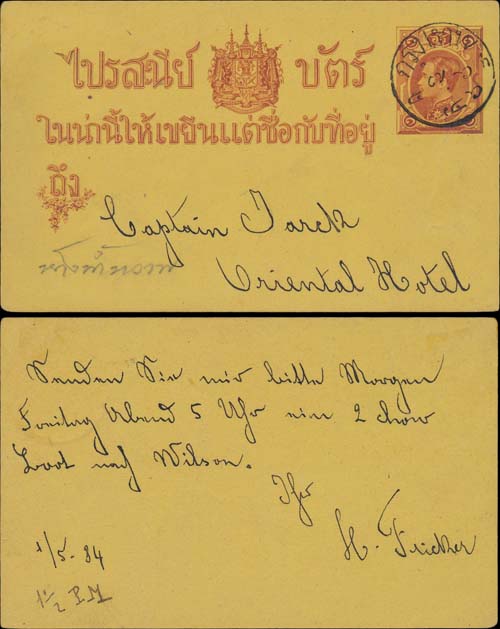 ไปรสนีย์ บัตร์
ในน่านี้ให้เขียนแต่ชื่อกับที่อยู่
ถึง
Captain Jarck
Oriental Hotel
Senden Sie mir bitte Morgen
Freitag Abend 5 Uhr ein 2 chow
Boot nach Wilson.
Ihr
H. Fricker
1/5-84
1½ P.M